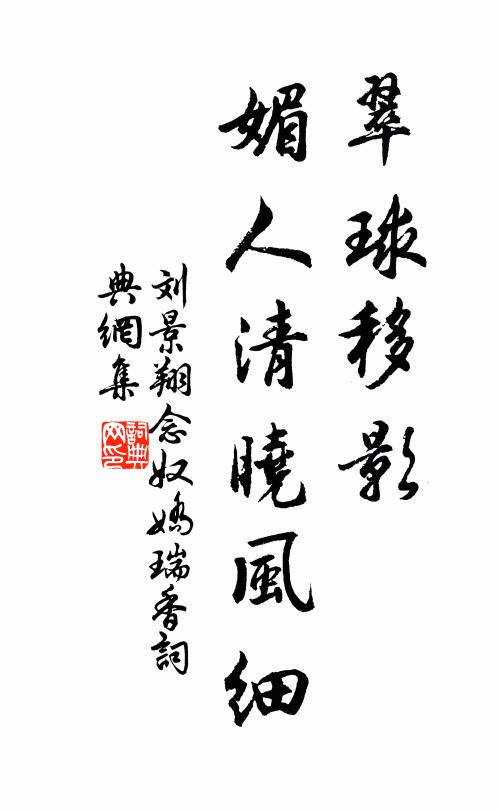 翠球移影
媚人清曉風細
刘景翔念奴嬌瑞香詞
典網集
詞典網印